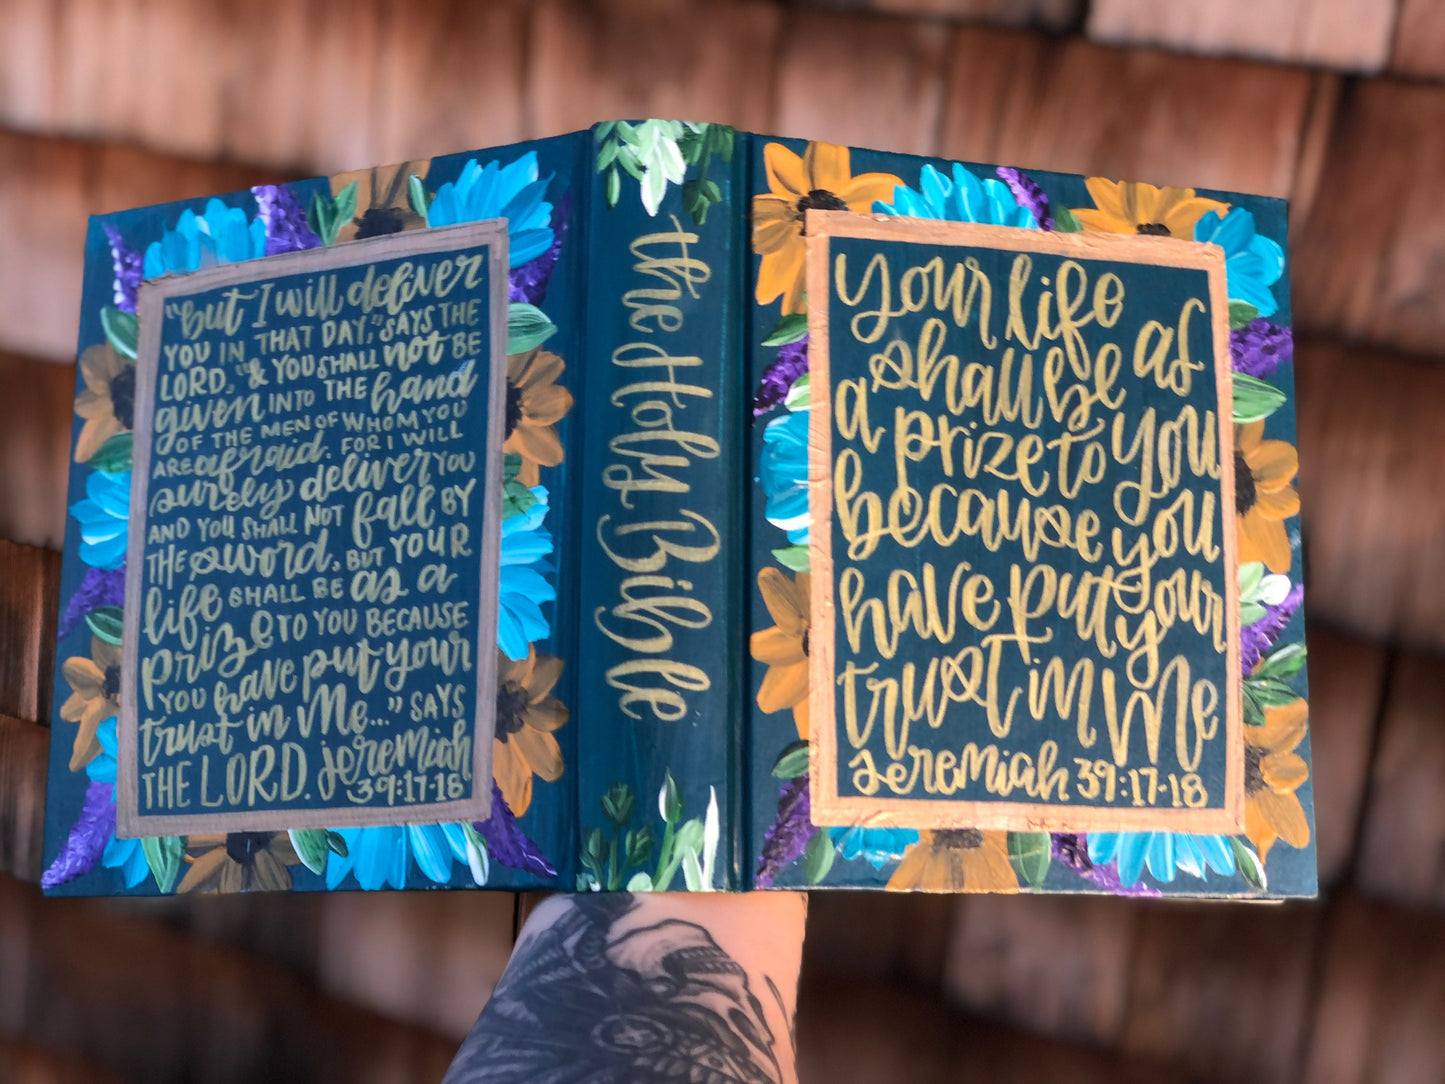 "but I will deliver
YOU IN THAT DAY," SAYS THE
LORD, "& YOU SHALL not BE
given INTO THE hand
OF THE MEN OF WHOM YOU
ARE afraid. FOR I WILL
surely deliver YOU
AND YOU SHALL NOT fall BY
THE sword, BUT YOUR
life SHALL BE as a
prize TO YOU BECAUSE
YOU have put your
trust in Me..." SAYS
THE LORD. Jeremiah
39:17-18
the Holy Bible
your life
shall be as
a prize to you
because you
have put your
trust in Me
Jeremiah 39:17-18